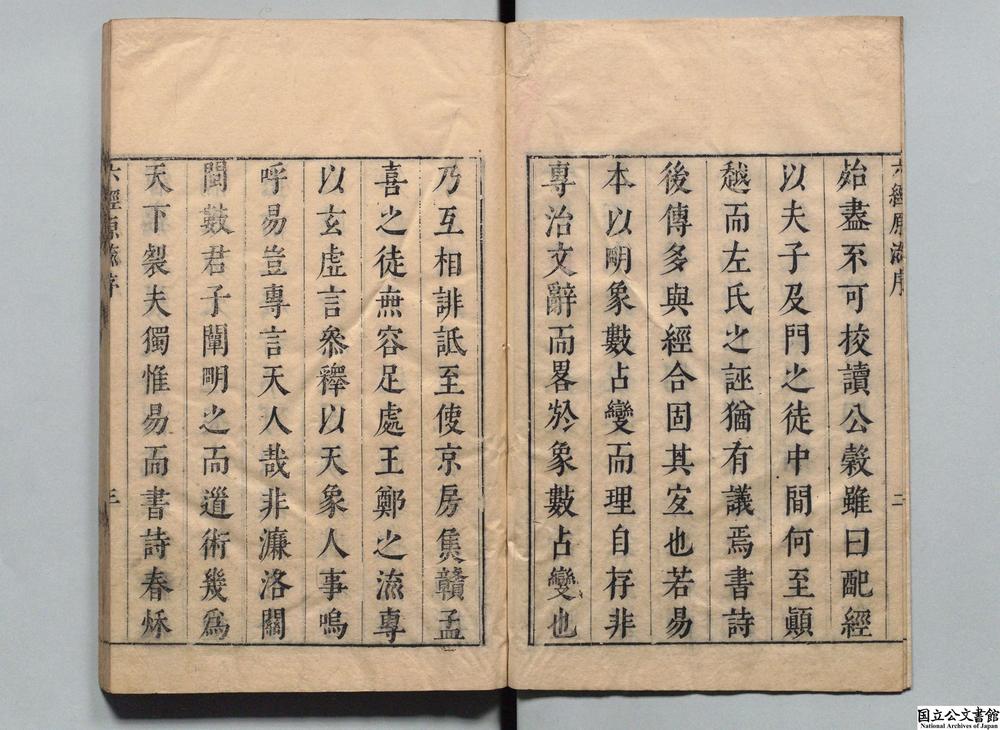 六經原流序
二
始盡不可校讀公穀雖曰配經
以夫子及門之徒中間何至顚
越而左氏之誣猶有議焉書詩
後傳多與經合固其宐也若易
本以明象數占變而理自存非
專治文辭而畧於象數占變也
乃互相誹詆至使京房焦贛孟
喜之徒無容足處王鄭之流專
以玄虛言叅釋以天象人事嗚
呼易豈專言天人哉非濂洛關
閩數君子闡明之而道術幾爲
天下裂夫獨惟易而書詩春秌
六經原流序
三
国立公文書館
National Archives of Japan